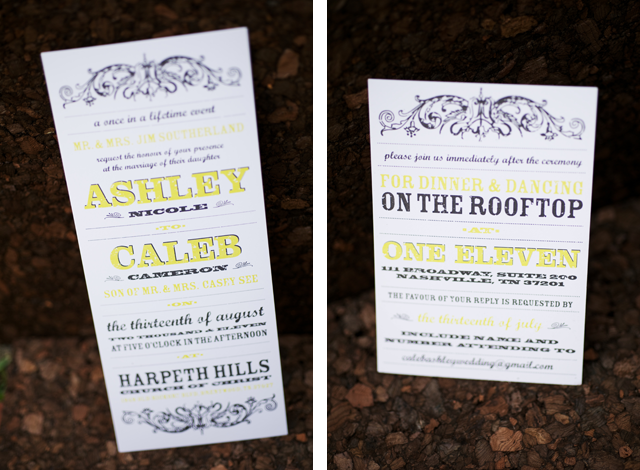 a once in a lifetime event
MR. & MRS. JIM SOUTHERLAND
request the honour of your presence
at the marriage of their daughter
ASHLEY
NICOLE
TO
CALEB
CAMERON
SON OF MR. & MRS. CASEY SEE
ON
the thirteenth of august
TWO THOUSAND & ELEVEN
AT FIVE O'CLOCK IN THE AFTERNOON
AT
HARPETH HILLS
CHURCH OF CHRIST
please join us immediately after the ceremony
FOR DINNER & DANCING
ON THE ROOFTOP
AT
ONE ELEVEN
111 BROADWAY, SUITE 200
NASHVILLE, TN 37201
THE FAVOUR OF YOUR REPLY IS REQUESTED BY
the thirteenth of july
INCLUDE NAME AND
NUMBER ATTENDING TO
calebashleywedding@gmail.com